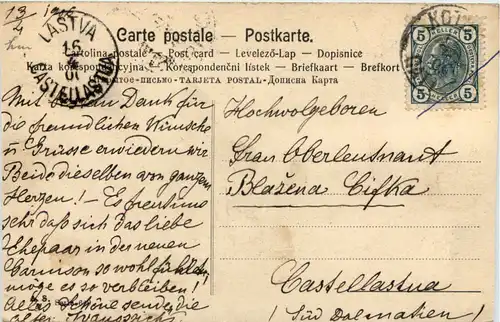 19/4 1906
LASTVA
CASTELLASTUA
Carte postale — Postkarte.
Cartolina postale — Post card — Levelező-Lap — Dopisnice
Karta korespondencyjna — Korespondenční lístek — Briefkaart — Brefkort
TARJETA POSTAL — Дописна Карта
5 HELLER 5
5 5
Mit Dank für
die freundlichen Wünsche
u Grüsse erwiedern wir
Beide dieselben von ganzem
Herzen! – Es freut uns
sehr daß sich das liebe
Ehepaar in der neuen
Garnison so wohl fühlt,
möge es so verbleiben!
Alles Schöne sende die
Hochwolgeboren
Frau Oberleutnant
Blažena Cifka
Castellastua
! Süd Dalmatien!